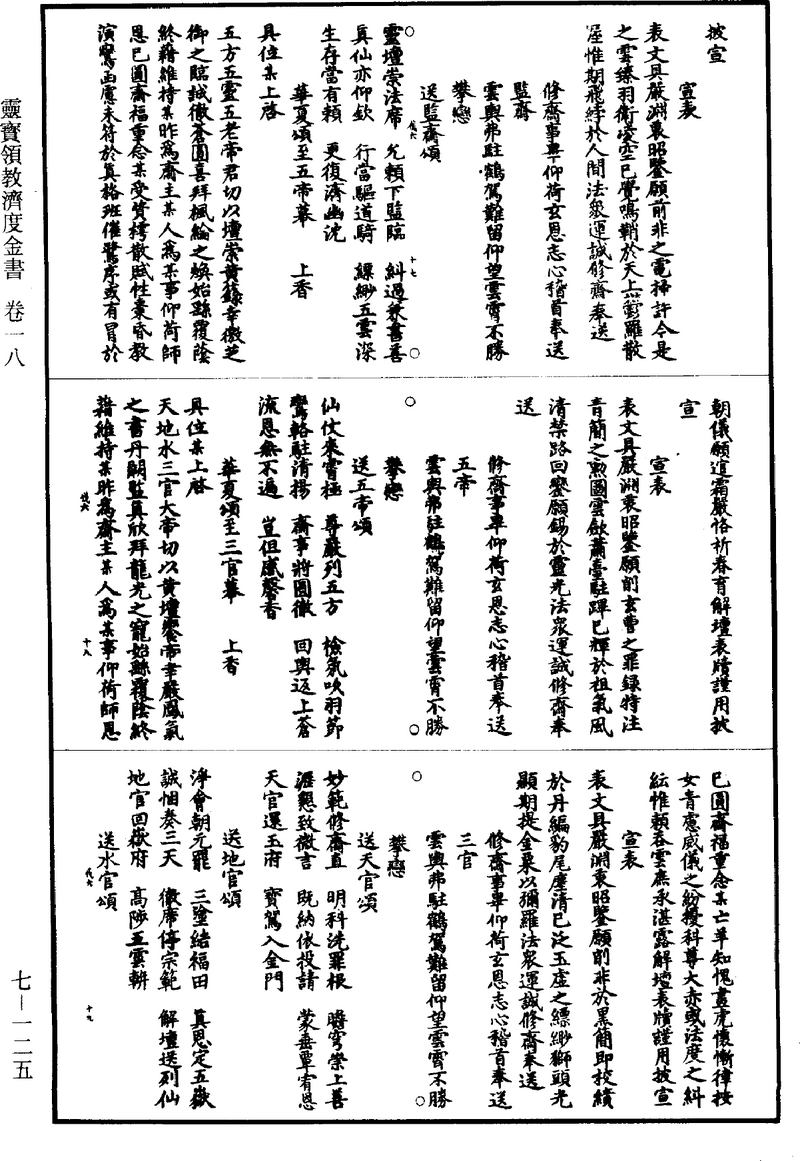 靈寶領教濟度金書 卷一八
七—一二五
披宣
宣表
表文具嚴淵衷昭鑒願前非之電掃許今是
之雲臻羽衛凌空已覺鳴鞘於天上罻羅散
屋惟期飛綍於人間法衆運誠修齋奉送
修齋事畢仰荷玄恩志心稽首奉送
監齋
雲輿弗駐鶴駕難留仰望雲霄不勝
攀戀
送監齋頌
靈壇崇法席 允賴下監臨 糾過兼書善
真仙亦仰欽 行當驅道騎 縹緲五雲深
生存當有賴 更復濟幽沈
華夏頌至五帝幕 上香
具位某上啓
五方五靈五老帝君切以壇崇黃籙幸徹芝
御之臨誠徹蒼圓喜拜楓綸之煥始繇覆蔭
終藉維持某昨爲齋主某人爲某事仰荷師
恩已圓齋福重念某受質樗散賦性棗昏教
演鸞函慮未符於真格班催鷺序或有冒於
朝儀願逭霜嚴恪祈春育解壇表牘謹用披
宣
宣表
表文具嚴淵衷昭鑒願削玄曹之罪錄特注
青簡之勲圖雲歛蕭臺駐蹕已輝於祖氣風
清禁路回鑾願錫於靈光法衆運誠修齋奉
送
修齋事畢仰荷玄恩志心稽首奉送
五帝
雲輿弗駐鶴駕難留仰望雲霄不勝
攀戀
送五帝頌
仙仗來霄極 尊嚴列五方 檢氣吹羽節
鸞輅駐清揚 齋事將圓徹 回輿返上蒼
流恩無不遍 豈但感馨香
華夏頌至三官幕 上香
具位某上啓
天地水三官大帝切以黃壇饗帝幸嚴鳳氣
之書丹闕監真欣拜龍光之寵始繇覆蔭終
藉維持某昨爲齋主某人爲某事仰荷師恩
已圓齋福重念某亡羊知愧畫虎懷慚律按
女青慮威儀之紛擾科尊大赤或法度之糾
紜惟賴吞雲庶承湛露解壇表牘謹用披宣
宣表
表文具嚴淵衷昭鑒願削非於黑簡即校績
於丹編豹尾塵清已泛玉虛之縹緲獅頭光
顯期提金粟以彌羅法衆運誠修齋奉送
修齋事畢仰荷玄恩志心稽首奉送
三官
雲輿弗駐鶴駕難留仰望雲霄不勝
攀戀
送天官頌
妙範修齋直 明科洗罪根 晧穹崇上善
瀝懇致微言 既納依投請 蒙垂覃宥恩
天官還玉府 寶駕入金門
送地官頌
淨會朝元罷 三塗結福田 真恩定五嶽
誠悃奏三天 徹席停宗範 解壇送列仙
地官回嶽府 高陟五雲輧
送水官頌